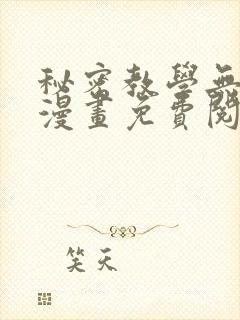 秘密教學無
漫畫免費閱
笑天